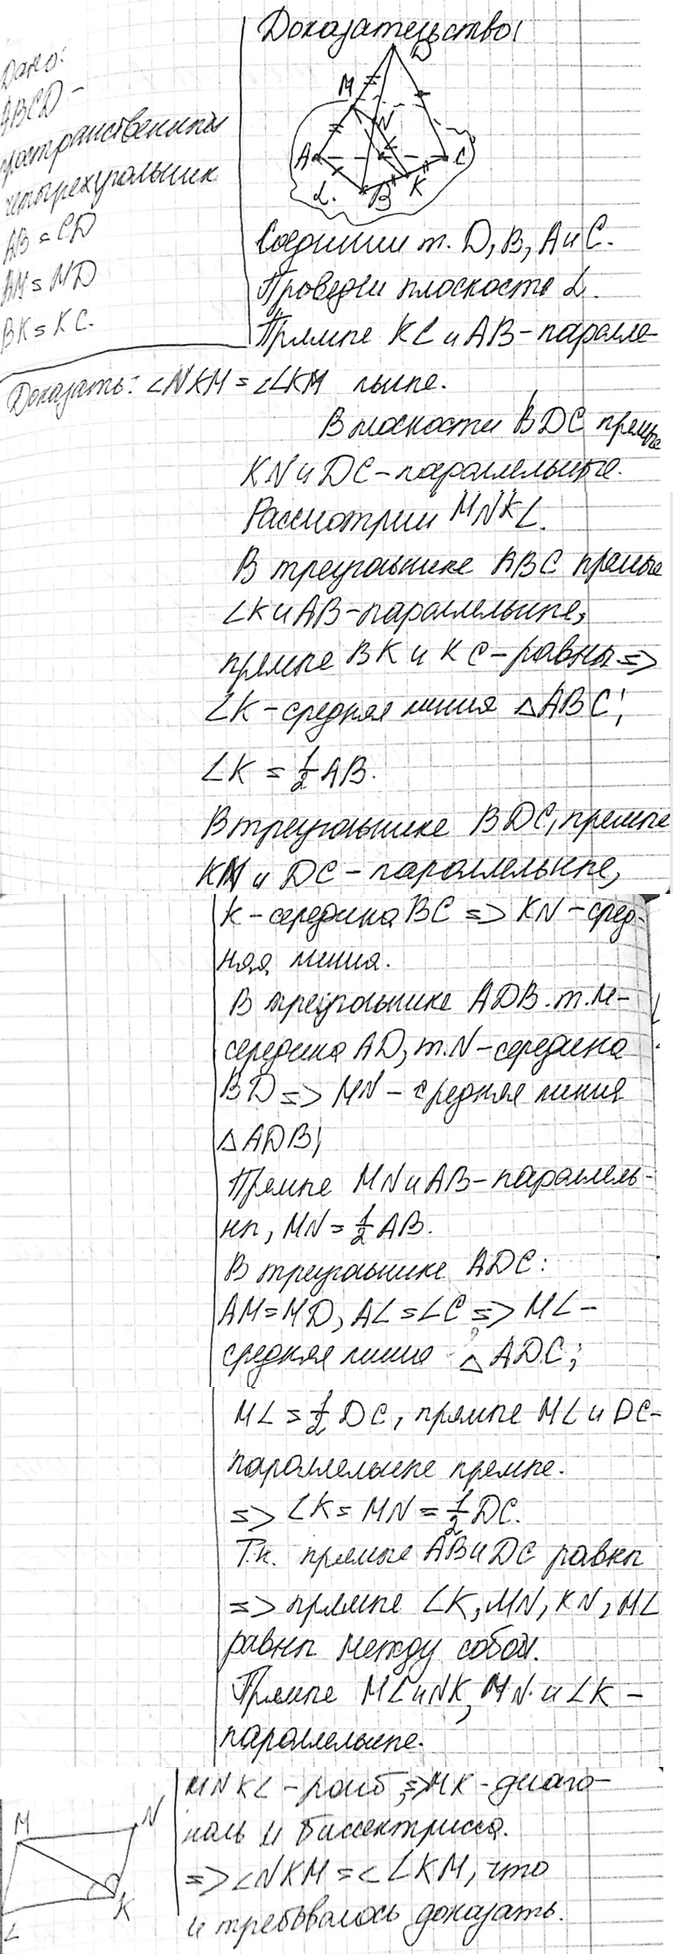 Дано:
ABCD -
пространственный
четырехугольник
AB = CD
AM = MD
BK = KC.
Доказать: ∠NKM = ∠LKM
Доказательство:
D
M
N
A
C
B
K
α.
Соединим т. D, B, A и C.
Проведём плоскость α.
Прямые KL и AB - паралле-
льные.
В плоскости BDC прямые
KN и DC - параллельные.
Рассмотрим MNKL.
В треугольнике ABC прямые
LK и AB - параллельные,
прямые BK и KC - равны =>
LK - средняя линия △ABC;
LK = 1/2 AB.
В треугольнике BDC, прямые
KN и DC - параллельные,
K - середина BC => KN - сред-
няя линия.
В треугольнике ADB т. M -
середина AD, т. N - середина
BD => MN - средняя линия
△ADB;
Прямые MN и AB - параллель-
ны, MN = 1/2 AB.
В треугольнике ADC:
AM = MD, AL = LC => ML -
средняя линия △ADC;
ML = 1/2 DC, прямые ML и DC -
параллельные прямые.
=> LK = MN = 1/2 DC.
Т.к. прямые AB и DC равны
=> прямые LK, MN, KN, ML
равны между собой.
Прямые ML и NK, MN и LK -
параллельные.
MNKL - ромб => MK - диаго-
наль и биссектрисса.
=> ∠NKM = ∠LKM, что
и требовалось доказать.
M
N
L
K